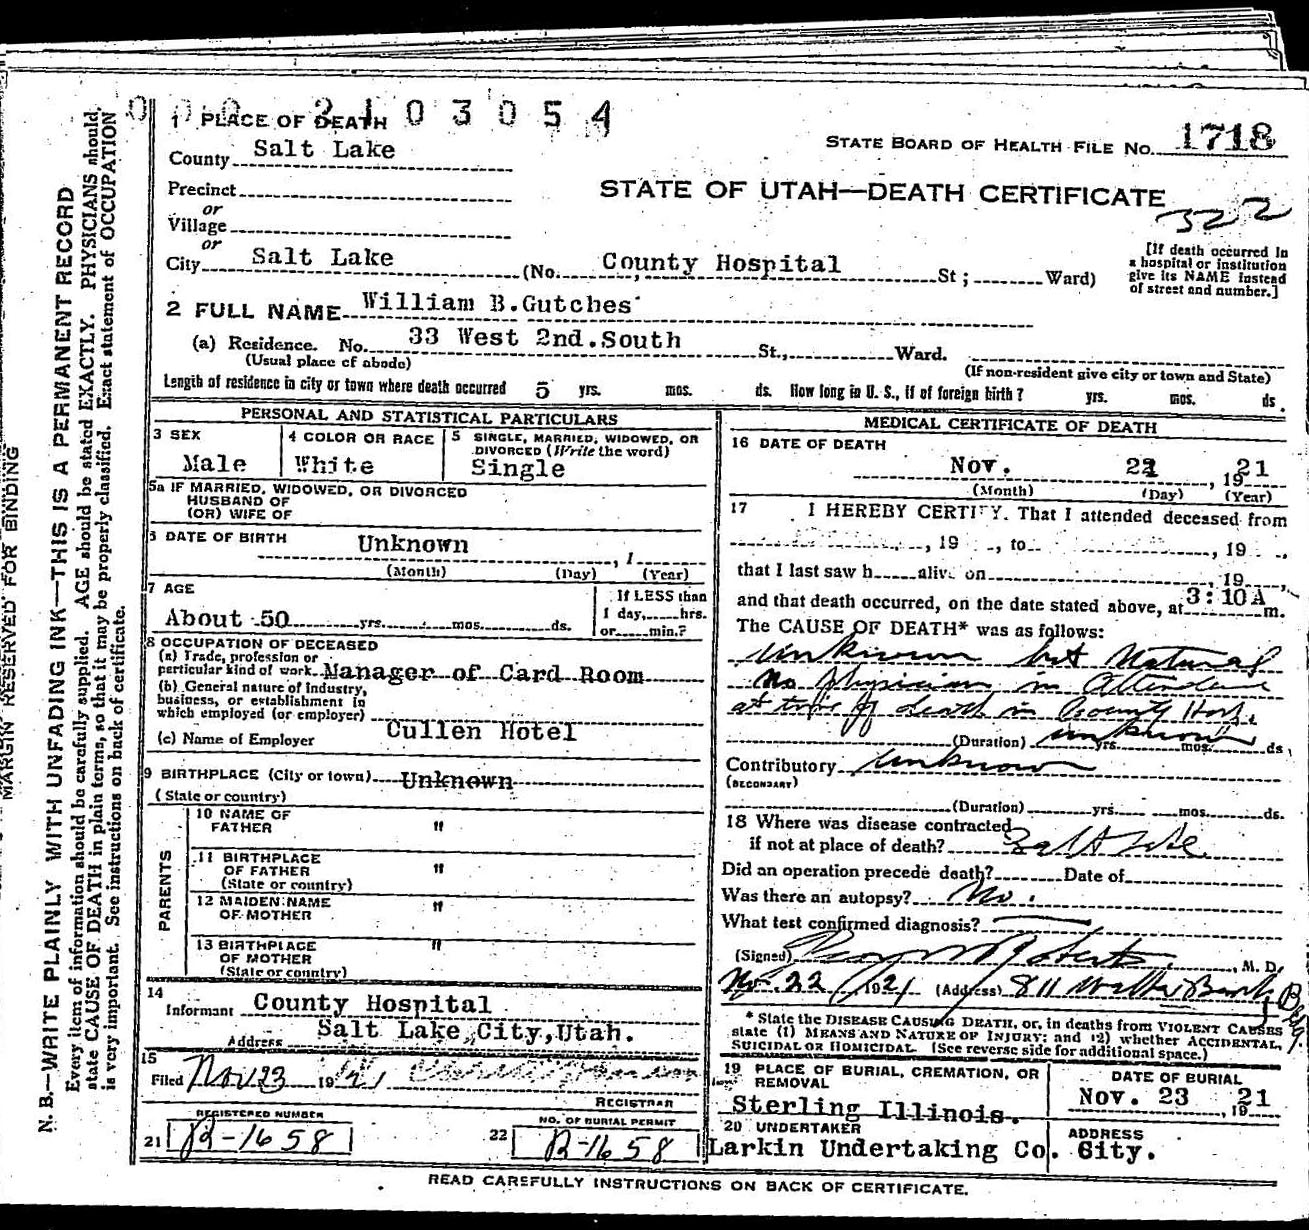 0 0 0 2 1 0 3 0 5 4
1 PLACE OF DEATH
STATE BOARD OF HEALTH FILE NO. 1718
County Salt Lake
STATE OF UTAH—DEATH CERTIFICATE
322
Precinct
or
Village
or
City Salt Lake (No. County Hospital St ; Ward)
[If death occurred in
a hospital or institution
give its NAME instead
of street and number.]
2 FULL NAME William B.Gutches
(a) Residence. No. 33 West 2nd.South St., Ward.
(Usual place of abode) (If non-resident give city or town and State)
Length of residence in city or town where death occurred 5 yrs. mos. ds. How long in U. S., if of foreign birth? yrs. mos. ds.
PERSONAL AND STATISTICAL PARTICULARS
3 SEX
Male
4 COLOR OR RACE
White
5 SINGLE, MARRIED, WIDOWED, OR
DIVORCED (Write the word)
Single
5a IF MARRIED, WIDOWED, OR DIVORCED
HUSBAND OF
(OR) WIFE OF
6 DATE OF BIRTH Unknown , 1
(Month) (Day) (Year)
7 AGE
About 50 yrs. mos. ds.
If LESS than
1 day, hrs.
or min.?
8 OCCUPATION OF DECEASED
(a) Trade, profession or
particular kind of work Manager of Card Room
(b) General nature of Industry,
business, or establishment in
which employed (or employer)
(c) Name of Employer Cullen Hotel
9 BIRTHPLACE (City or town) Unknown
(State or country)
PARENTS
10 NAME OF
FATHER "
11 BIRTHPLACE
OF FATHER "
(State or country)
12 MAIDEN NAME
OF MOTHER "
13 BIRTHPLACE
OF MOTHER "
(State or country)
14
Informant County Hospital
Address Salt Lake City,Utah.
15
Filed Nov 23 1921
REGISTRAR
REGISTERED NUMBER
21 B-1658
NO. OF BURIAL PERMIT
22 B-1658
MEDICAL CERTIFICATE OF DEATH
16 DATE OF DEATH
Nov. 22 , 1921
(Month) (Day) (Year)
17 I HEREBY CERTIFY. That I attended deceased from
, 19 , to , 19 ,
that I last saw h alive on , 19 ,
and that death occurred, on the date stated above, at 3:10A m.
The CAUSE OF DEATH* was as follows:
Unknown but Natural
No physician in Attendence
at time of death in County Hosp.
(Duration) unknown yrs. mos. ds.
Contributory Unknown
(SECONDARY)
(Duration) yrs. mos. ds.
18 Where was disease contracted
if not at place of death? Salt Lake
Did an operation precede death? Date of
Was there an autopsy? No.
What test confirmed diagnosis?
(Signed) , M. D.
Nov. 22 1921 (Address) 811 Walker Bank Bldg.
* State the DISEASE CAUSING DEATH, or, in deaths from VIOLENT CAUSES
state (1) MEANS AND NATURE OF INJURY; and (2) whether ACCIDENTAL,
SUICIDAL OR HOMICIDAL. (See reverse side for additional space.)
19 PLACE OF BURIAL, CREMATION, OR
REMOVAL
Sterling Illinois.
DATE OF BURIAL
Nov. 23 1921
20 UNDERTAKER
Larkin Undertaking Co.
ADDRESS
City.
READ CAREFULLY INSTRUCTIONS ON BACK OF CERTIFICATE.
MARGIN RESERVED FOR BINDING
N. B.—WRITE PLAINLY WITH UNFADING INK—THIS IS A PERMANENT RECORD
Every item of information should be carefully supplied. AGE should be stated EXACTLY. PHYSICIANS should
state CAUSE OF DEATH in plain terms, so that it may be properly classified. Exact statement of OCCUPATION
is very important. See instructions on back of certificate.